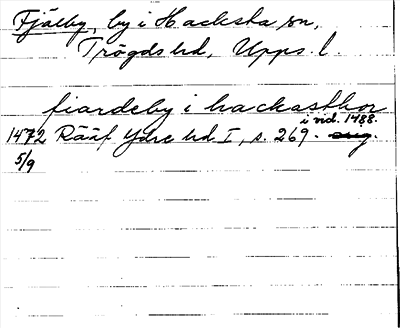 Fjälby, by i Hacksta sn,
Trögds hd, Upps. l.
fiardeby i hackasthor
i vid. 1488.
1472 Rääf Ydre hd I, s. 269. orig.
5/9